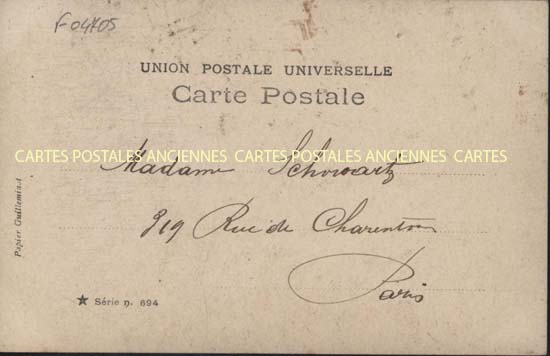 F04705
UNION POSTALE UNIVERSELLE
Carte Postale
Madame Schwartz
CARTES POSTALES ANCIENNES CARTES POSTALES ANCIENNES CARTES
319 Rue de Charenton
Paris
Papier Guilleminot
★ Série n. 694